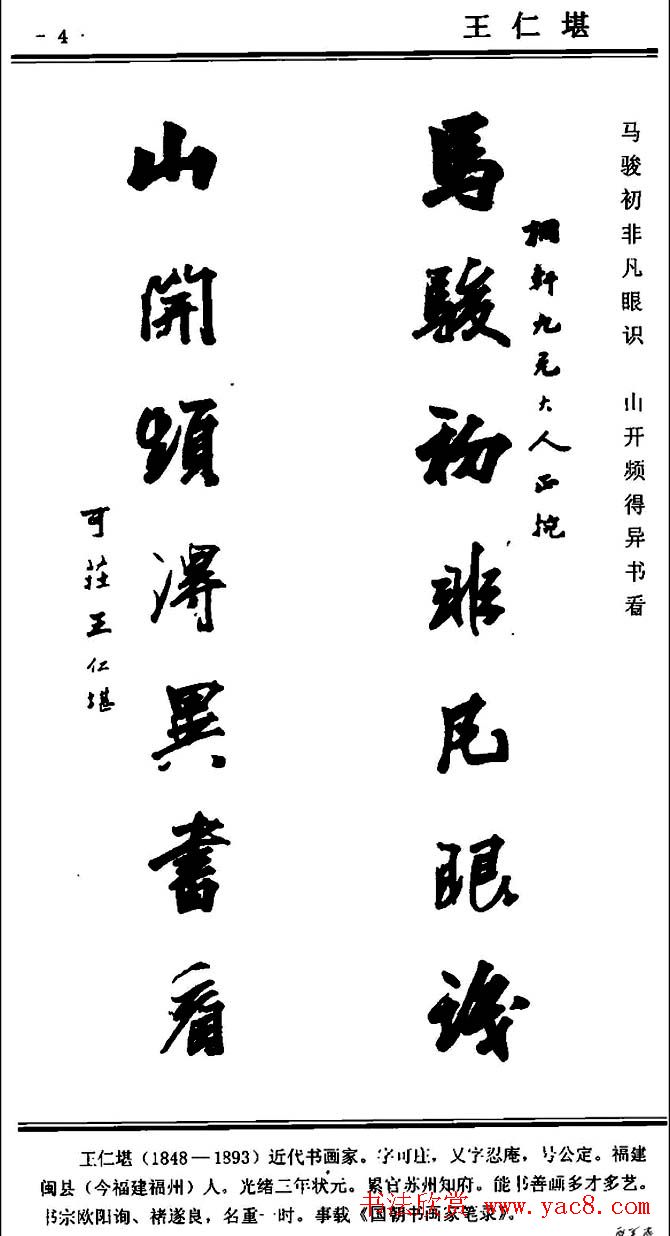 - 4 ·
王仁堪
马骏初非凡眼识 山开频得异书看
桐轩九兄大人正捥
馬駿初非凡眼識
山開頻得異書看
可莊王仁堪
王仁堪（1848—1893）近代书画家。字可庄，又字忍庵，号公定。福建
闽县（今福建福州）人。光绪三年状元。累官苏州知府。能书善画多才多艺。
书宗欧阳询、褚遂良，名重一时。事载《国朝书画家笔录》。
书法欣赏 www.yac8.com